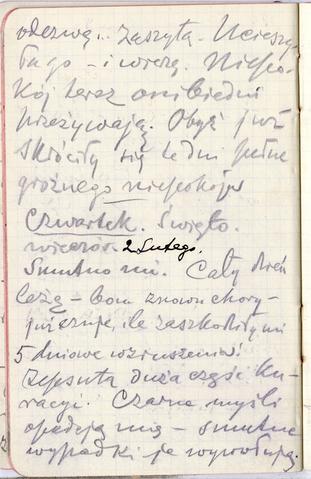 odezwą.. Zaszyta. Ucieszy
ła go - i wierzą. Niepo-
kój teraz oni biedni
przeżywają. Obyż już
skróciły się te dni pełne
groźnego niepokoju
Czwartek. Święto.
wieczór. 2 lutego.
Smutno mi. Cały dzień
leżę - bom znowu chory -
ile zaszkodziły mi
5 dniowe wzruszenia.
Zepsuta duża część ku-
racyi. Czarne myśli
opadają mię - smutne
wypadki je wywołują.